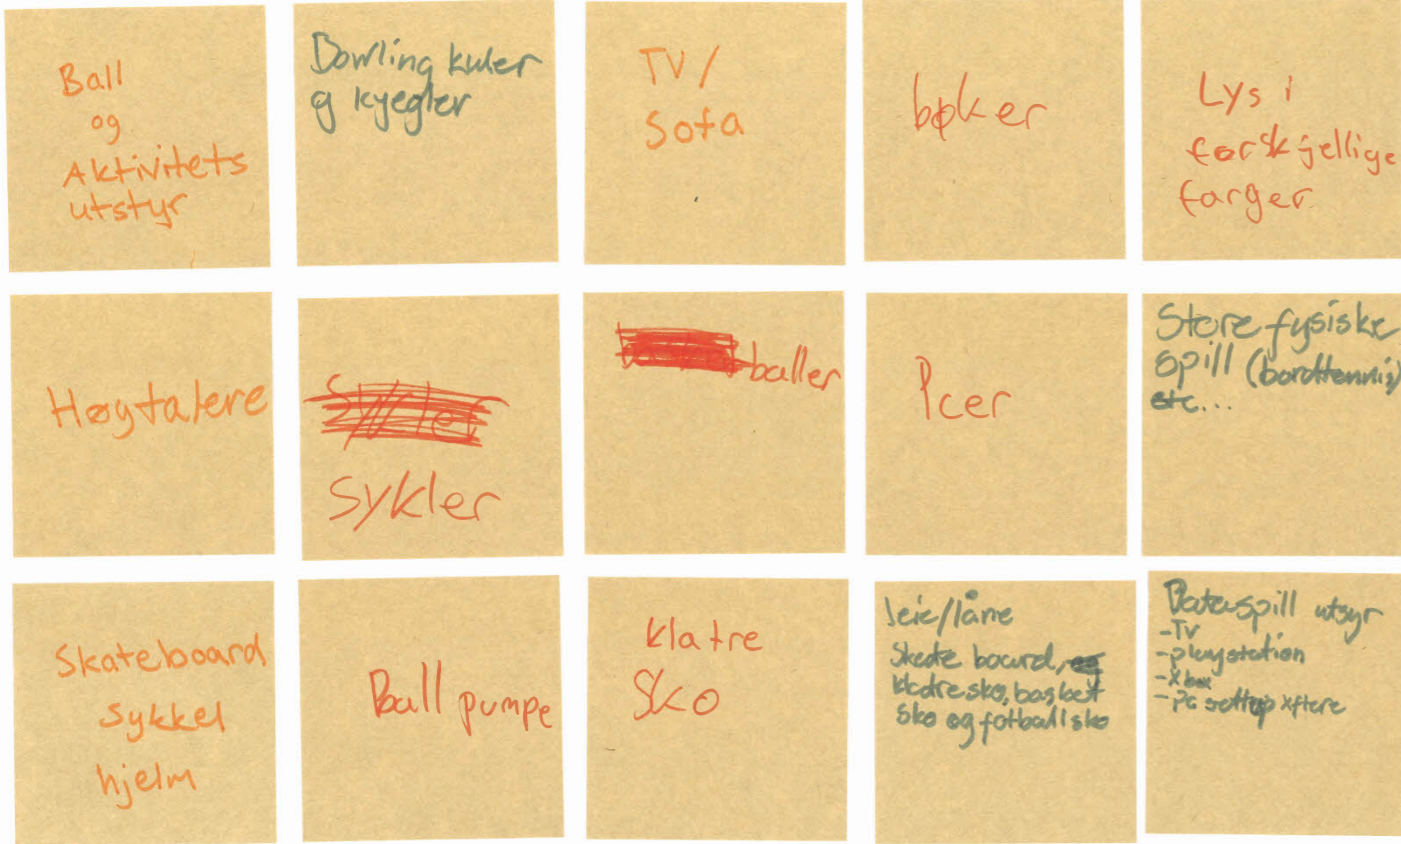 Ball
og
Aktivitets
utstyr
Bowling kuler
g kyegler
TV /
Sofa
bøker
Lys i
forskjellige
farger
Høgtalere
Sykler
Sykler
baller
Pcer
Store fysiske
spill (bordtennis)
etc...
Skateboard
sykkel
hjelm
Ball pumpe
klatre
Sko
leie/låne
Skate board, og
klatresko, basket
sko og fotballsko
Dataspill utsyr
-TV
-playstation
-Xbox
-pc settup xflere